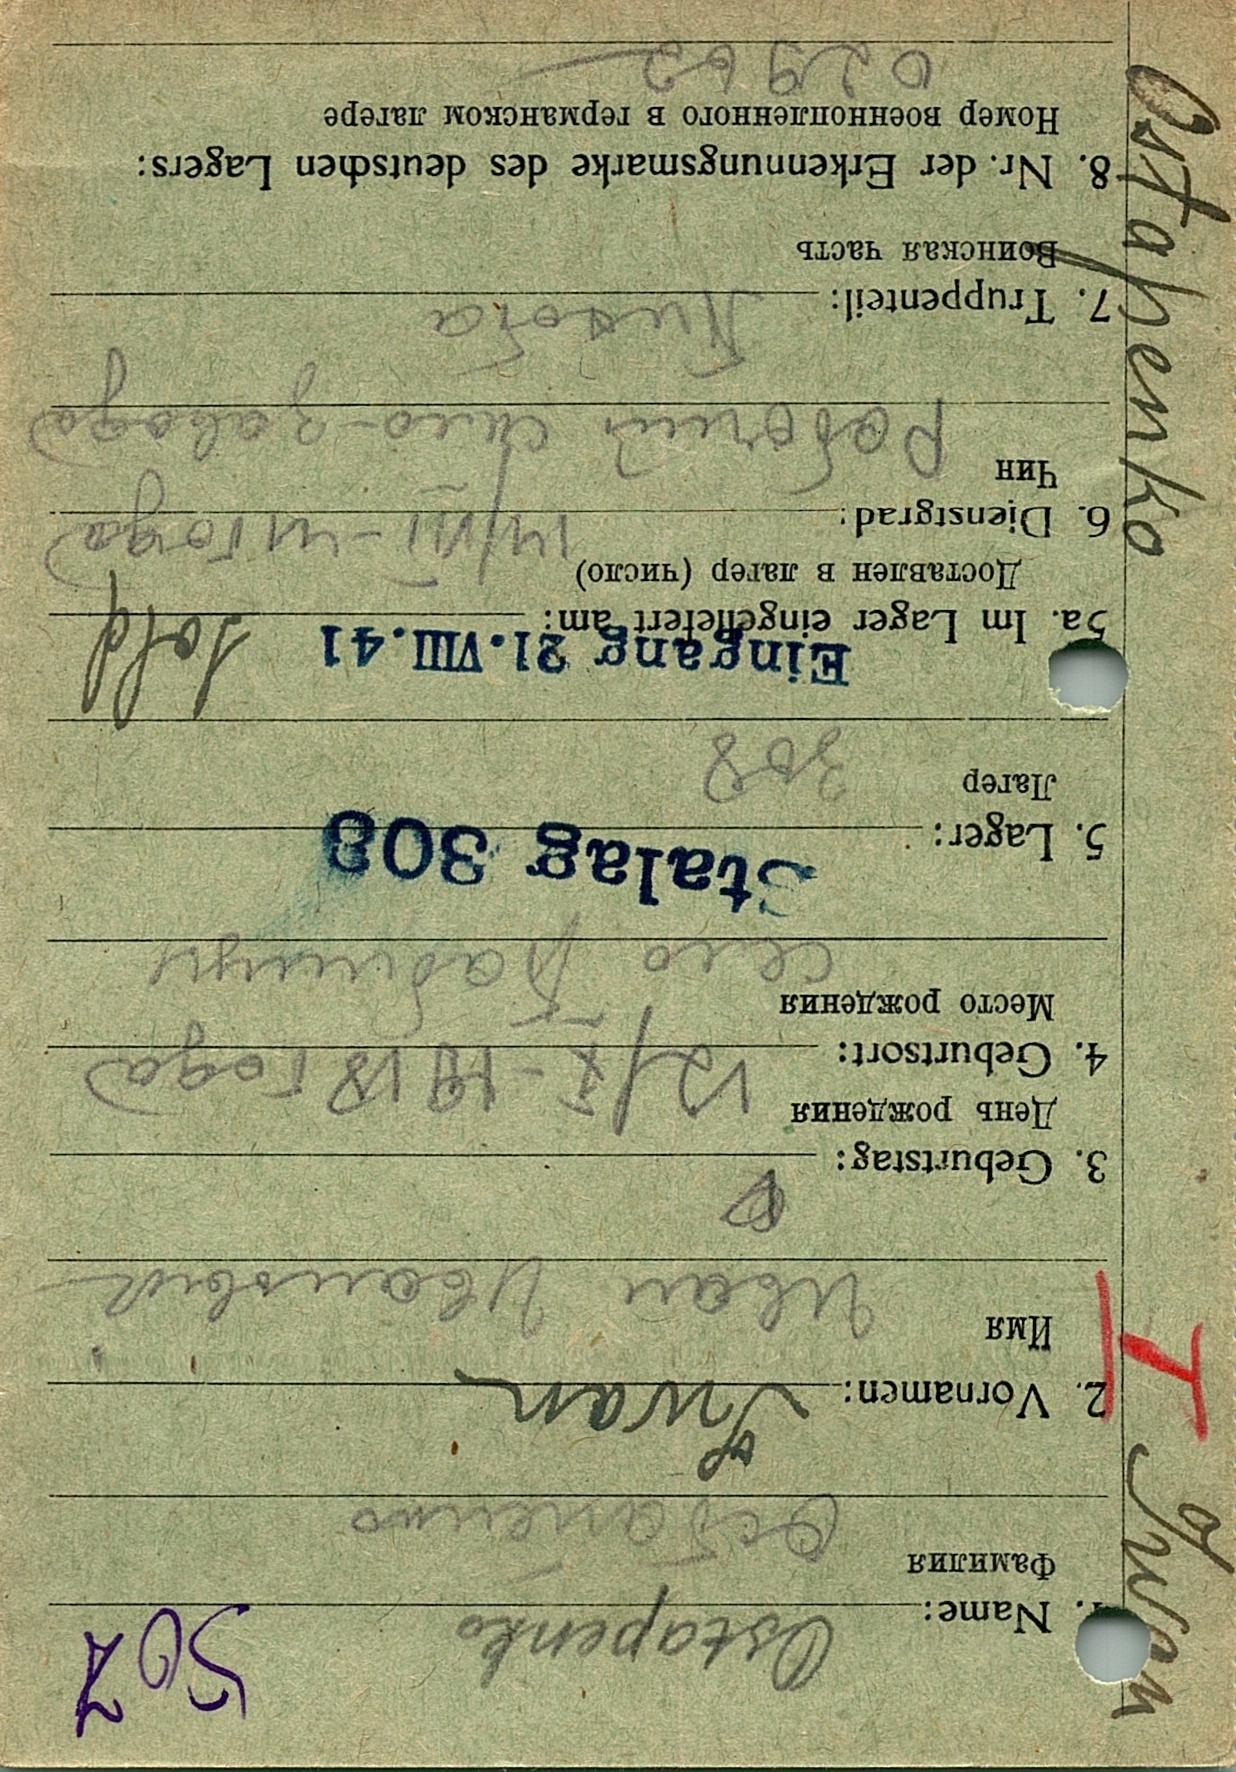 507
Ostapenko
1. Name:
Фамилия
Остапенко
Iwan
2. Vornamen:
Имя
Иван Иванович
3. Geburtstag:
День рождения
12/X-1918 года
4. Geburtsort:
Место рождения
село Бабинцы
Stalag 308
5. Lager:
Лагер
308
Eingang 21. VIII. 41
Sold
5a. Im Lager eingeliefert am:
Доставлен в лагер (число)
14/VII-41 года
6. Dienstgrad:
Чин
Рабочий завода
7. Truppenteil:
Воинская часть
8. Nr. der Erkennungsmarke des deutschen Lagers:
Номер военнопленного в германском лагере
02962
Ostapenko I Iwan